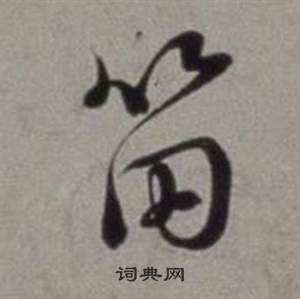 笛
词典网